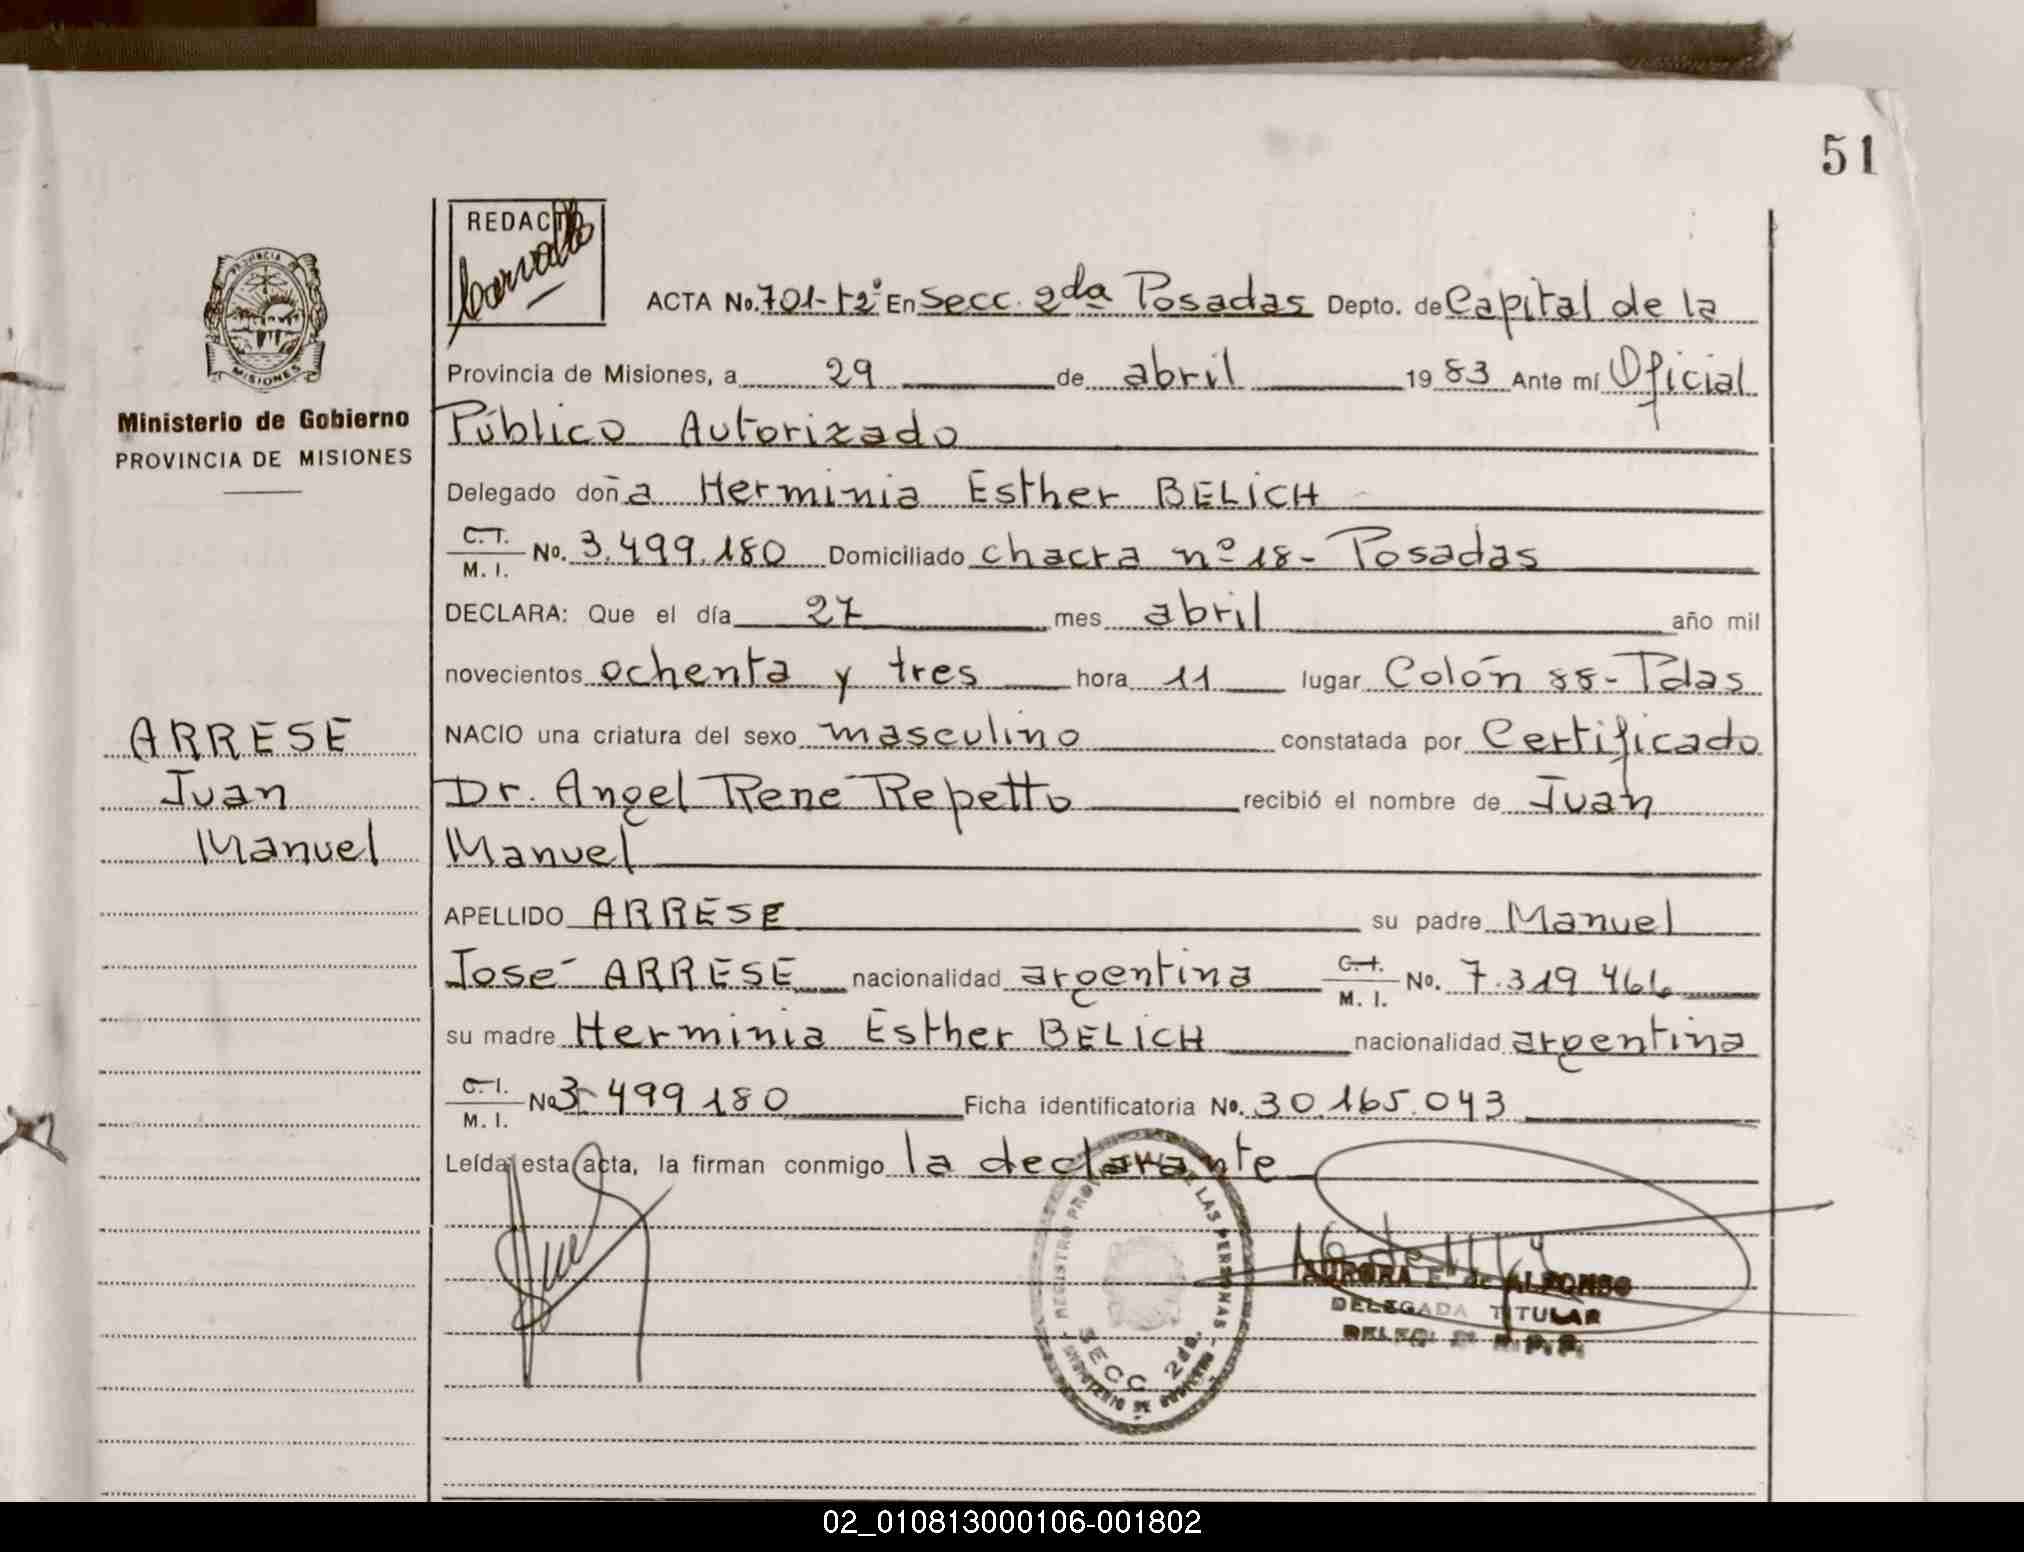 51
REDACTO
Carvallo
ACTA No. 701-tº2º En Secc. 2da Posadas Depto. de Capital de la
Provincia de Misiones, a 29 de abril 1983 Ante mí Oficial
Público Autorizado
Delegado doña Herminia Esther BELICH
C.I. M. I. No. 3.499.180 Domiciliado chacra nº 18- Posadas
DECLARA: Que el día 27 mes abril año mil
novecientos ochenta y tres hora 11 lugar Colón 88- Pdas
NACIO una criatura del sexo masculino constatada por Certificado
Dr. Angel René Repetto recibió el nombre de Juan
Manuel
APELLIDO ARRESE su padre Manuel
José ARRESE nacionalidad argentina C.I. M. I. No. 7.319.466
su madre Herminia Esther BELICH nacionalidad argentina
C.I. M. I. No 3.499180 Ficha identificatoria No. 30.165.043
Leída esta acta, la firman conmigo la declarante
PROVINCIA
MISIONES
Ministerio de Gobierno
PROVINCIA DE MISIONES
ARRESE
Juan
Manuel
REGISTRO PROVINCIAL DE LAS PERSONAS - MINISTERIO DE GOBIERNO
SECC 2da.
AURORA E. de ALFONSO
DELEGADA TITULAR
DELEG. 2ª R.P.P.
02_010813000106-001802